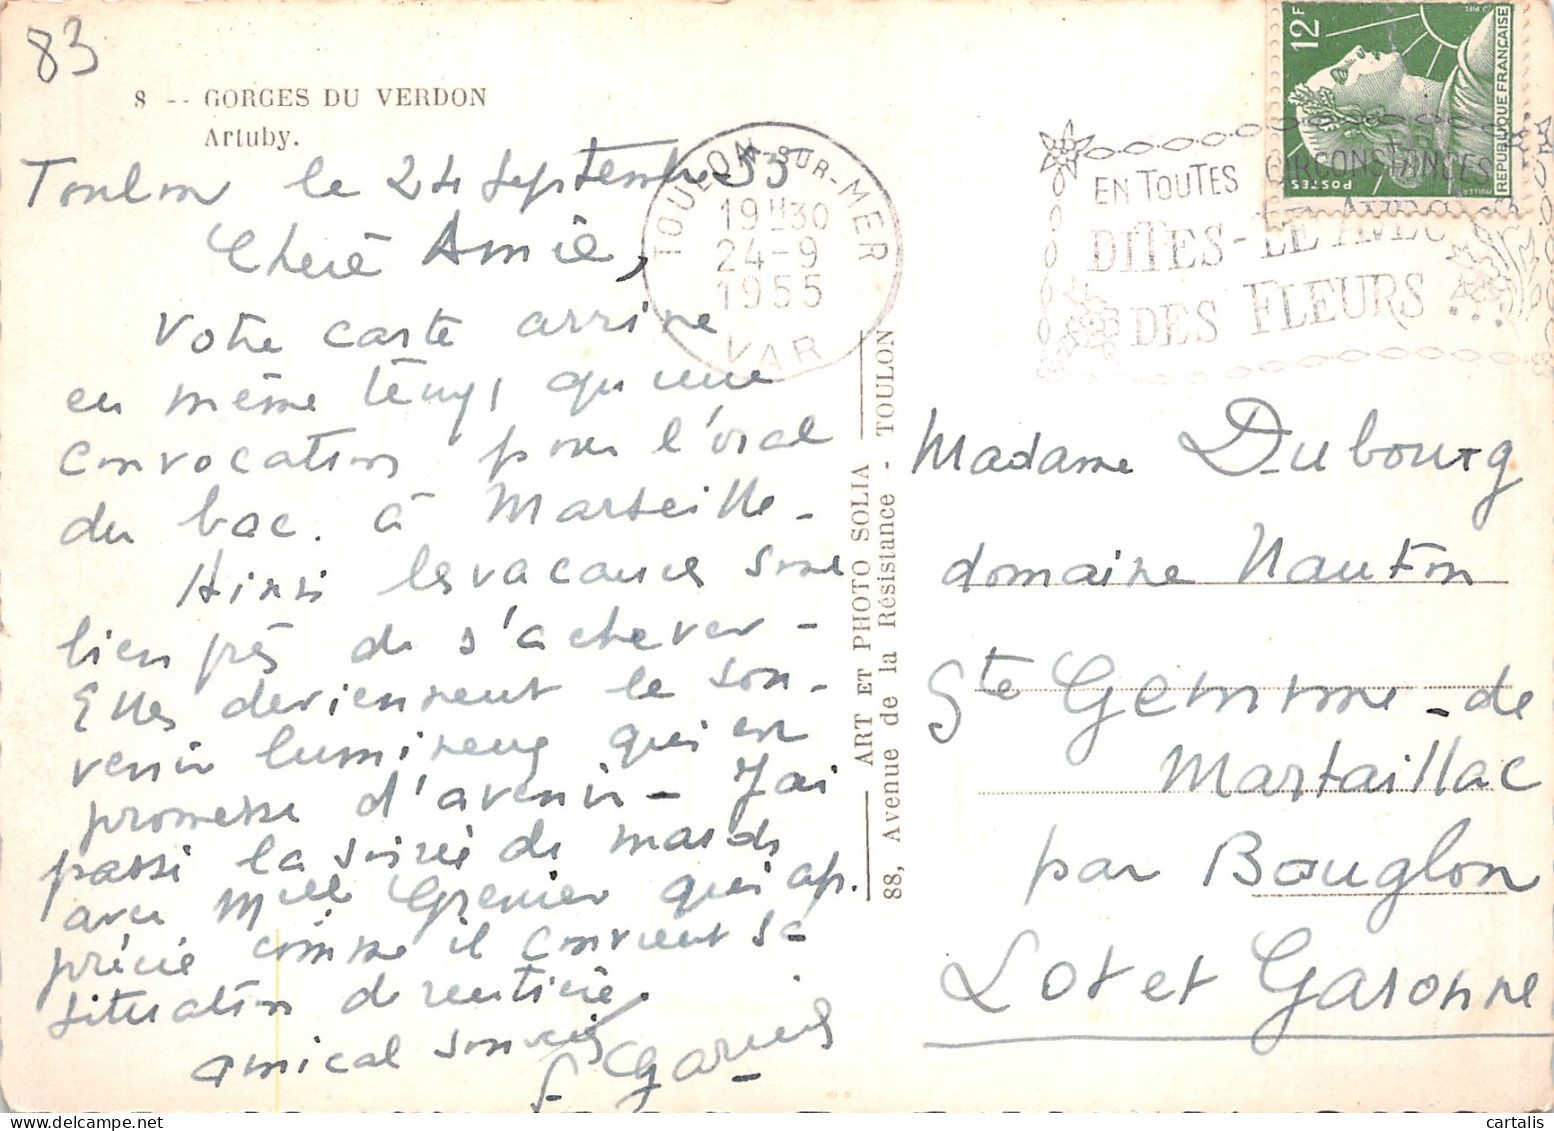 83
8 -- GORGES DU VERDON
Artuby.
Toulon le 24 septembre 55
Chère Amie,
Votre carte arrive
en même temps qu'une
convocation pour l'oral
du bac. à Marseille -
Ainsi les vacances sont
bien près de s'achever -
Elles deviennent le sou-
venir lumineux qui est
promesse d'avenir - J'ai
passé la soirée de mardi
avec Mlle Grenier qui ap.
précie comme il convient sa
situation de rentière.
amical souvenir
TOULON-SUR-MER
19H30
24-9
1955
VAR
EN TOUTES CIRCONSTANCES
DITES-LE AVEC
DES FLEURS...
12F
REPUBLIQUE FRANÇAISE
POSTES
MULLER
J. PIEL
ART ET PHOTO SOLIA
88, Avenue de la Résistance - TOULON
Madame Dubourg
domaine Nauton
Ste Gemme-de
Martaillac
par Bouglon
Lot et Garonne
www.delcampe.net
cartalis